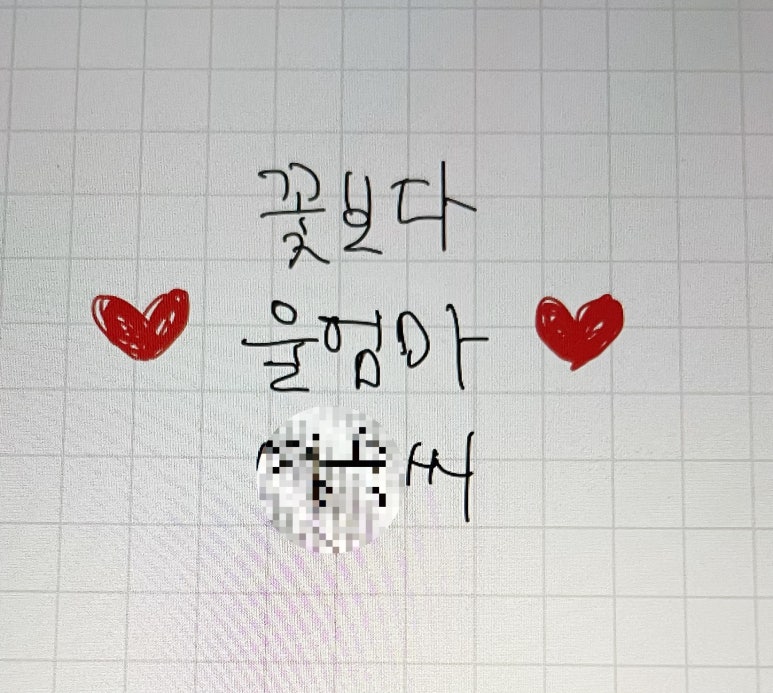 꽃보다
울엄마
씨